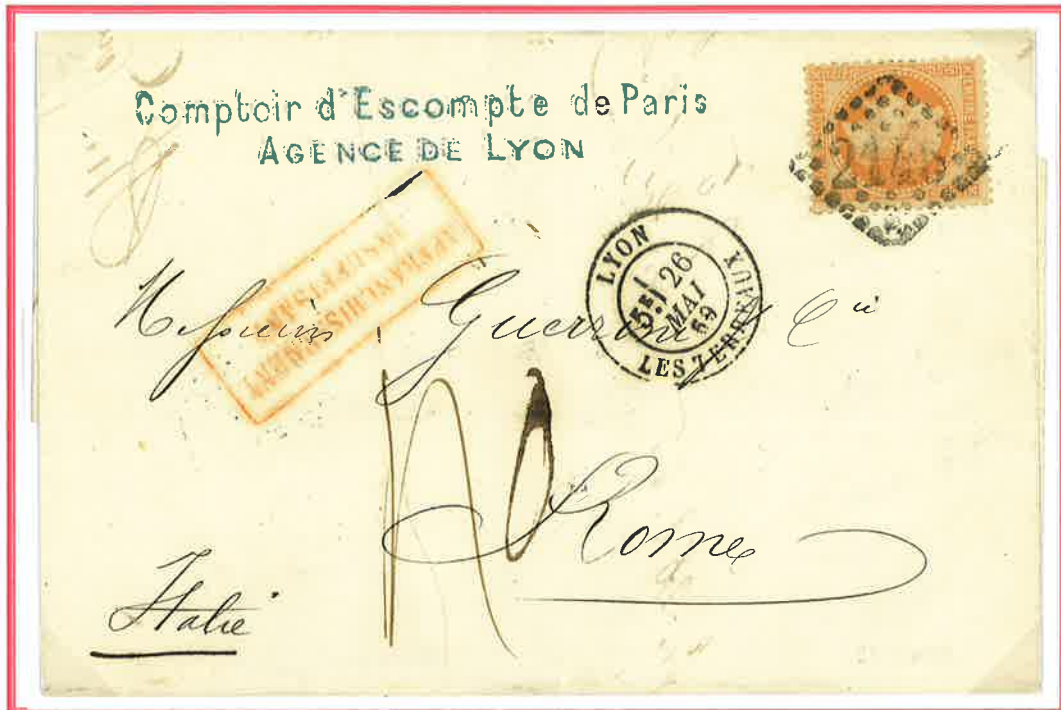 Comptoir d'Escompte de Paris
AGENCE DE LYON
AFFRANCHISSEMENT
INSUFFISANT
LYON
26
MAI
69
LES TERREAUX
Messieurs Guerrini & Cie
Rome
Italie